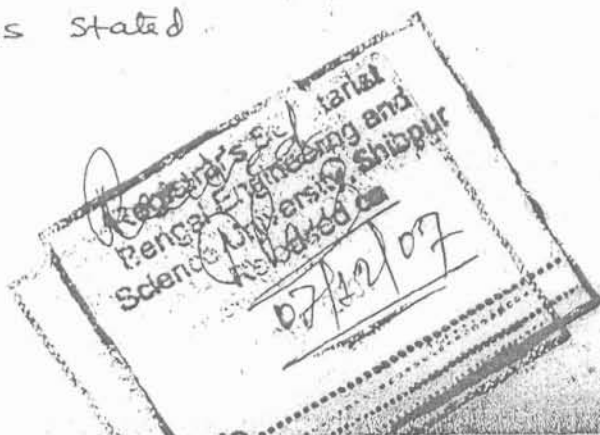 s stated
Registrar's Sec tariat
Bengal Engineering and
Science University, Shibpur
Received on
07/12/07